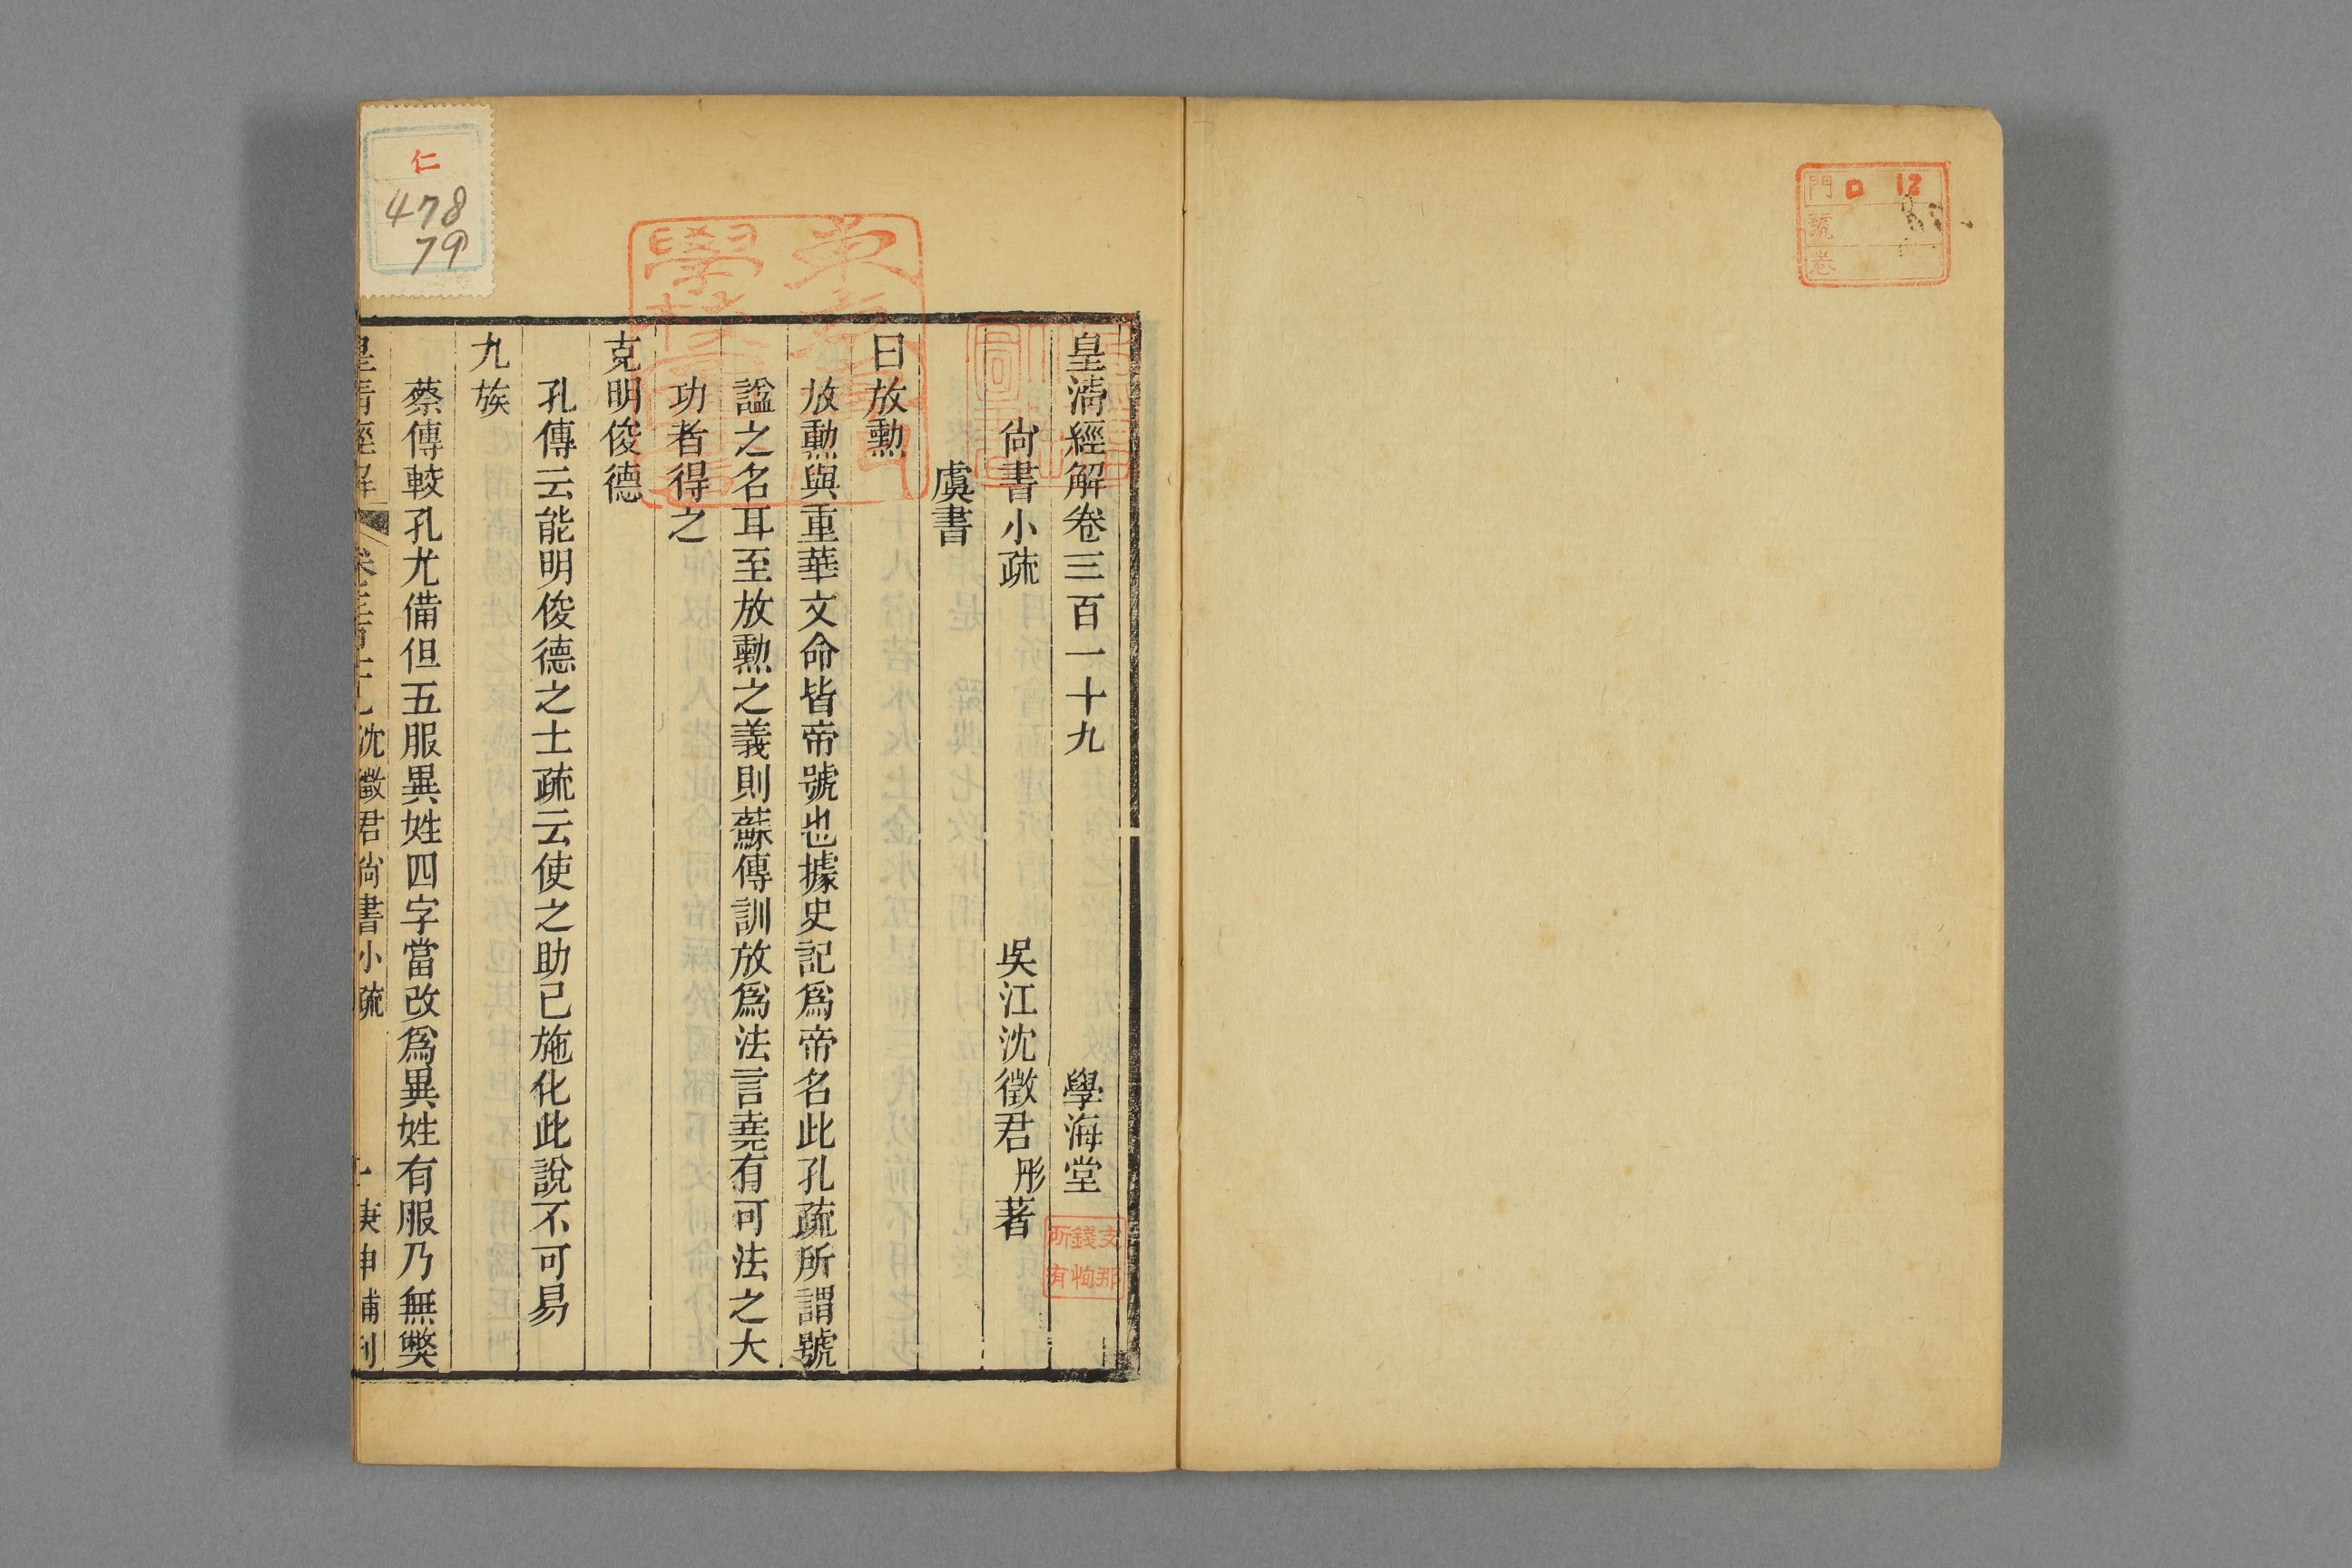 門 口 12
號
卷
皇淸經解卷三百一十九
學海堂
尙書小疏
吳江沈徵君彤著
虞書
曰放勳
放勳與重華文命皆帝號也據史記爲帝名此孔疏所謂號
諡之名耳至放勳之義則蘇傳訓放爲法言堯有可法之大
功者得之
克明俊德
孔傳云能明俊德之士疏云使之助己施化此說不可易
九族
蔡傳較孔尤備但五服異姓四字當改爲異姓有服乃無弊
皇淸經解
卷三百十九 沈徵君尙書小疏
一 庚申補刊
仁
478
79
文那
錢恂
所有